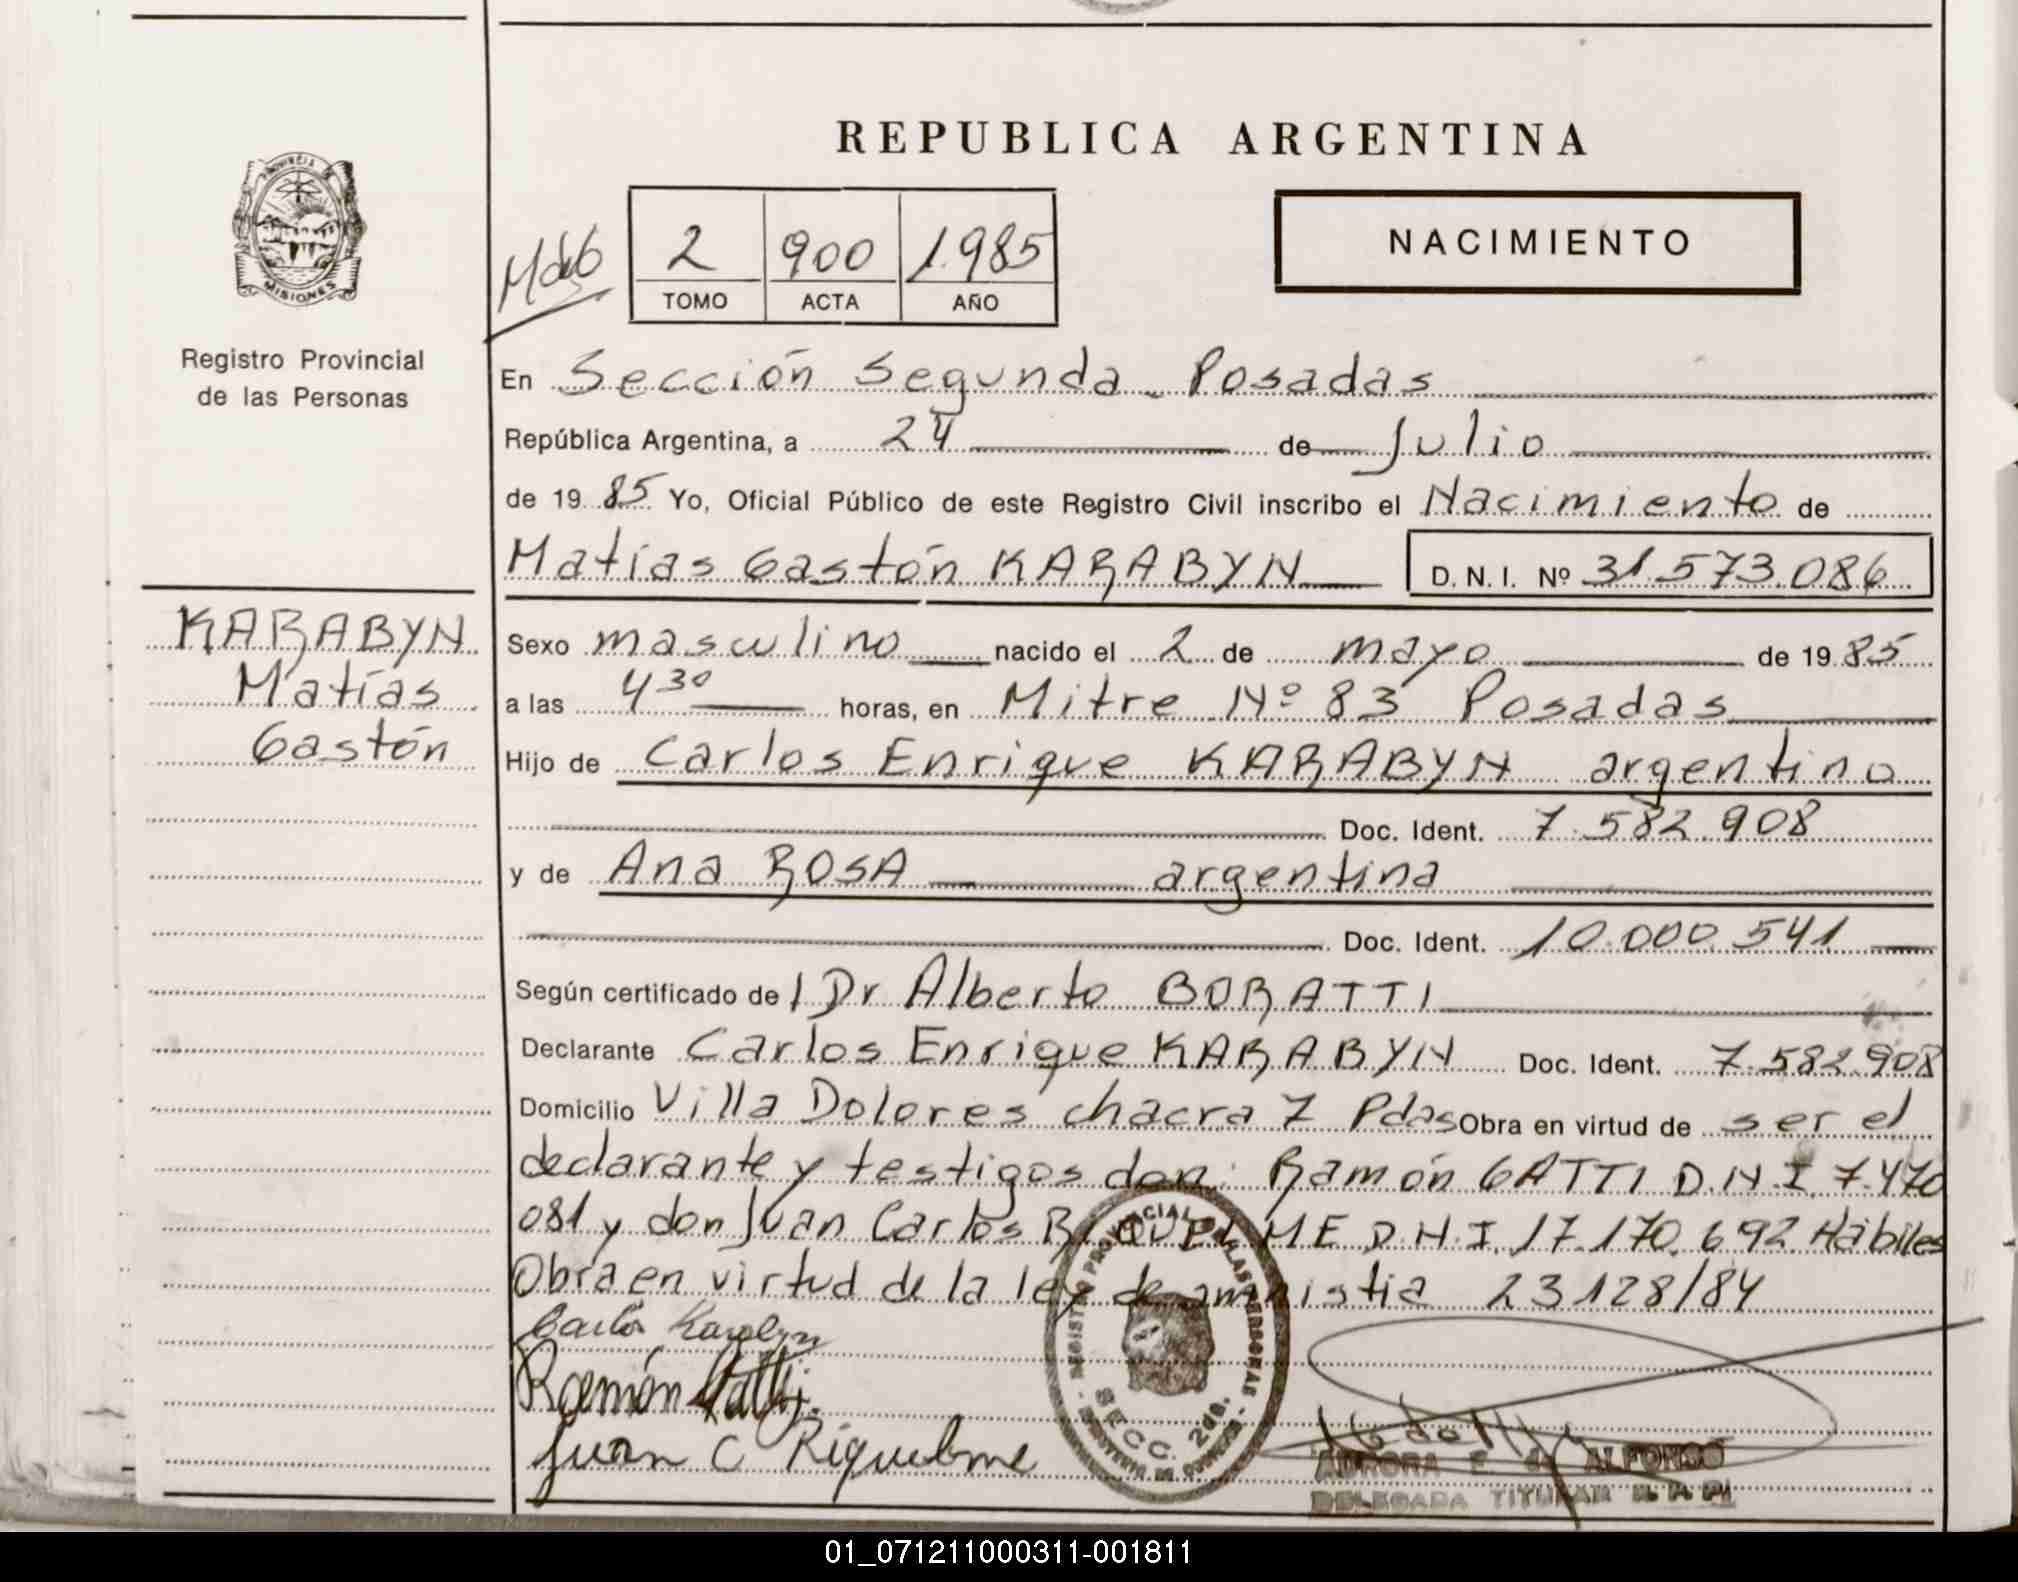 REPUBLICA ARGENTINA
PROVINCIA DE
MISIONES
Registro Provincial
de las Personas
2 900 1.985
TOMO ACTA AÑO
NACIMIENTO
En Sección Segunda - Posadas
República Argentina, a 24 de Julio
de 19 85 Yo, Oficial Público de este Registro Civil inscribo el Nacimiento de
Matías Gastón KARABYN D. N. I. Nº 31.573.086
KARABYN
Matías
Gastón
Sexo masculino nacido el 2 de mayo de 19 85
a las 4 30 horas, en Mitre Nº 83 Posadas
Hijo de Carlos Enrique KARABYN argentino
Doc. Ident. 7.582.908
y de Ana ROSA argentina
Doc. Ident. 10.000.541
Según certificado de Dr Alberto BORATTI
Declarante Carlos Enrique KARABYN Doc. Ident. 7.582.908
Domicilio Villa Dolores chacra 7 Pdas Obra en virtud de ser el
declarante y testigos don: Ramón GATTI D.N.I. 7.470
081 y don Juan Carlos RIQUELME D.N.I. 17.170.692 Hábiles
Obra en virtud de la ley de amnistia 23128/84
Carlos Karabyn
Ramón Gatti
Juan C Riquelme
REGISTRO PROVINCIAL DE LAS PERSONAS
SECC. 2da.
AURORA E. de ALFONSO
DELEGADA TITULAR R. P. P.
01_071211000311-001811